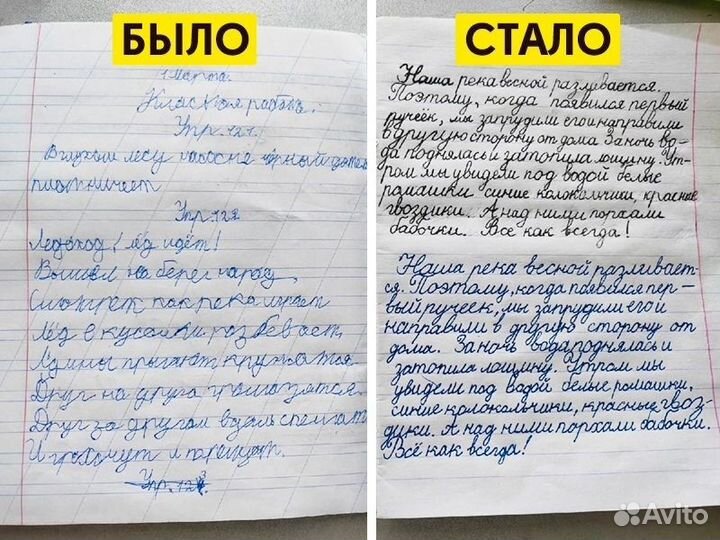 БЫЛО
1 марта.
Класная работа.
Упр. 121.
В лесу чёрный
плотничает
Упр 122
Ледоход! Лёд идёт!
Вышел на берег народ
Смотрет как река играет
Лёд в кусочки разбевает,
Лдины прыгают кружатся
Друг на друга громаздятся.
Друг за другом вдаль спешат
И грохочут и трещат.
Упр. 123.
СТАЛО
Наша река весной разливается.
Поэтому, когда появился первый
ручеек, мы запрудили его и направили
в другую сторону от дома. За ночь во-
да поднялась и затопила лощину. Ут-
ром мы увидели под водой белые
ромашки синие колокольчики, красные
гвоздики. А над ними порхали
бабочки. Всё как всегда!
Наша река весной разливает-
ся. Поэтому, когда появился пер-
вый ручеек, мы запрудили его и
направили в другую сторону от
дома. За ночь вода поднялась и
затопила лощину. Утром мы
увидели под водой белые ромашки,
синие колокольчики, красные гвоз-
дики. А над ними порхали бабочки.
Всё как всегда!
Avito